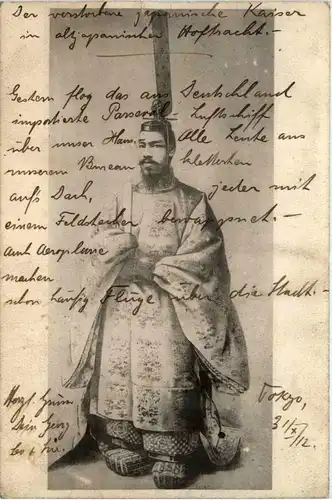 Der verstorbene japanische Kaiser
in altjapanischer Hoftracht. –
Gestern flog das aus Deutschland
importierte Parseval-Luftschiff
über unser Haus. Alle Leute aus
unserem Bureau kletterten
aufs Dach, jeder mit
einem Feldstecher bewappnet. –
Auch Aeroplane
machen
schon häufig Flüge über die Stadt. –
Herzl. Grüsse
Dein
Tokyo,
31/X/12.